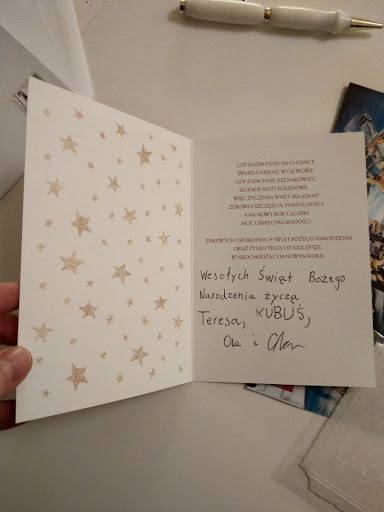 GDY ROZBŁYŚNIE NA CHOINCE
ŚWIATEŁO PIĘKNE, WYJĄTKOWE,
GDY ZAPACHNIE JUŻ MAKOWIEC,
SŁODKIE NUTY KOLĘDOWE,
WIĘC ŻYCZENIA WNET SKŁADAMY
ZDROWIA, SZCZĘŚCIA, POMYŚLNOŚCI,
A NA NOWY ROK CAŁUSKI
MOC UŚMIECHU I RADOŚCI.
ZDROWYCH I SPOKOJNYCH ŚWIĄT BOŻEGO NARODZENIA
ORAZ TYLKO TEGO, CO NAJLEPSZE
W NADCHODZĄCYM NOWYM ROKU
Wesołych Świąt Bożego
Narodzenia życzą
Teresa, KUBUŚ,
Ola i